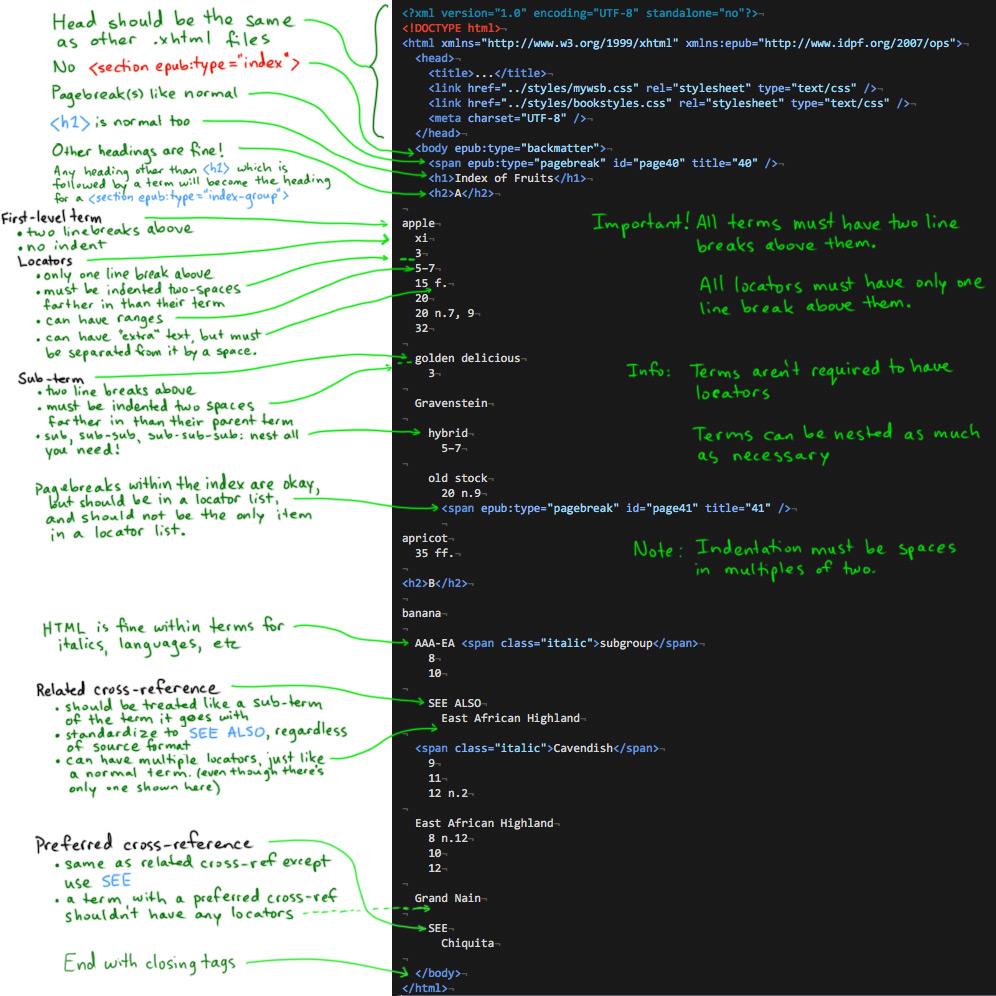 Head should be the same
as other .xhtml files
No <section epub:type="index">
Pagebreak(s) like normal
<h1> is normal too
Other headings are fine!
Any heading other than <h1> which is
followed by a term will become the heading
for a <section epub:type="index-group">
First-level term
• two linebreaks above
• no indent
Locators
• only one line break above
• must be indented two-spaces
farther in than their term
• can have ranges
• can have "extra" text, but must
be separated from it by a space.
Sub-term
• two line breaks above
• must be indented two spaces
farther in than their parent term
• sub, sub-sub, sub-sub-sub: nest all
you need!
Pagebreaks within the index are okay,
but should be in a locator list,
and should not be the only item
in a locator list.
HTML is fine within terms for
italics, languages, etc
Related cross-reference
• should be treated like a sub-term
of the term it goes with
• standardize to SEE ALSO, regardless
of source format
• can have multiple locators, just like
a normal term. (even though there's
only one shown here)
Preferred cross-reference
• same as related cross-ref except
use SEE
• a term with a preferred cross-ref
shouldn't have any locators
End with closing tags
<?xml version="1.0" encoding="UTF-8" standalone="no"?>¬
<!DOCTYPE html>¬
<html xmlns="http://www.w3.org/1999/xhtml" xmlns:epub="http://www.idpf.org/2007/ops">¬
<head>¬
<title>...</title>¬
<link href="../styles/mywsb.css" rel="stylesheet" type="text/css" />¬
<link href="../styles/bookstyles.css" rel="stylesheet" type="text/css" />¬
<meta charset="UTF-8" />¬
</head>¬
<body epub:type="backmatter">¬
<span epub:type="pagebreak" id="page40" title="40" />¬
<h1>Index of Fruits</h1>¬
<h2>A</h2>¬
¬
apple¬
xi¬
3¬
5-7¬
15 f.¬
20¬
20 n.7, 9¬
32¬
¬
golden delicious¬
3¬
¬
Gravenstein¬
¬
hybrid¬
5-7¬
¬
old stock¬
20 n.9¬
<span epub:type="pagebreak" id="page41" title="41" />¬
¬
apricot¬
35 ff.¬
¬
<h2>B</h2>¬
¬
banana¬
¬
AAA-EA <span class="italic">subgroup</span>¬
8¬
10¬
¬
SEE ALSO¬
East African Highland¬
¬
<span class="italic">Cavendish</span>¬
9¬
11¬
12 n.2¬
¬
East African Highland¬
8 n.12¬
10¬
12¬
¬
Grand Nain¬
¬
SEE¬
Chiquita¬
¬
</body>¬
</html>¬
Important! All terms must have two line
breaks above them.
All locators must have only one
line break above them.
Info: Terms aren't required to have
locators
Terms can be nested as much
as necessary
Note: Indentation must be spaces
in multiples of two.